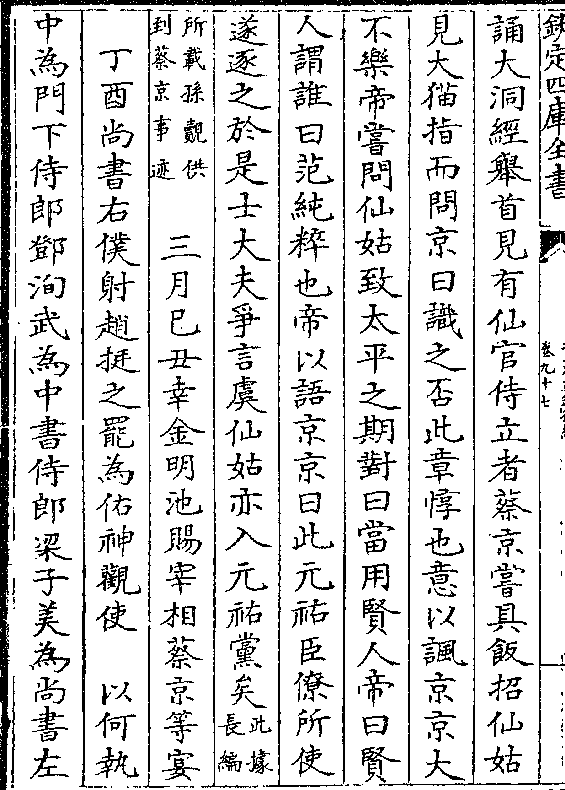 欽定四庫全書
卷九十七
誦大洞經舉首見有仙官侍立者蔡京嘗具飯招仙姑
見大猫指而問京曰識之否此章惇也意以諷京京大
不樂帝嘗問仙姑致太平之期對曰當用賢人帝曰賢
人謂誰曰范純粹也帝以語京京曰此元祐臣僚所使
遂逐之於是士大夫爭言虞仙姑亦入元祐黨矣此據長編
所載孫覿供到蔡京事迹　三月已丑幸金明池賜宰相蔡京等宴
丁酉尚書右僕射趙挺之罷為佑神觀使　以何執
中為門下侍郎鄧洵武為中書侍郎梁子美為尚書左